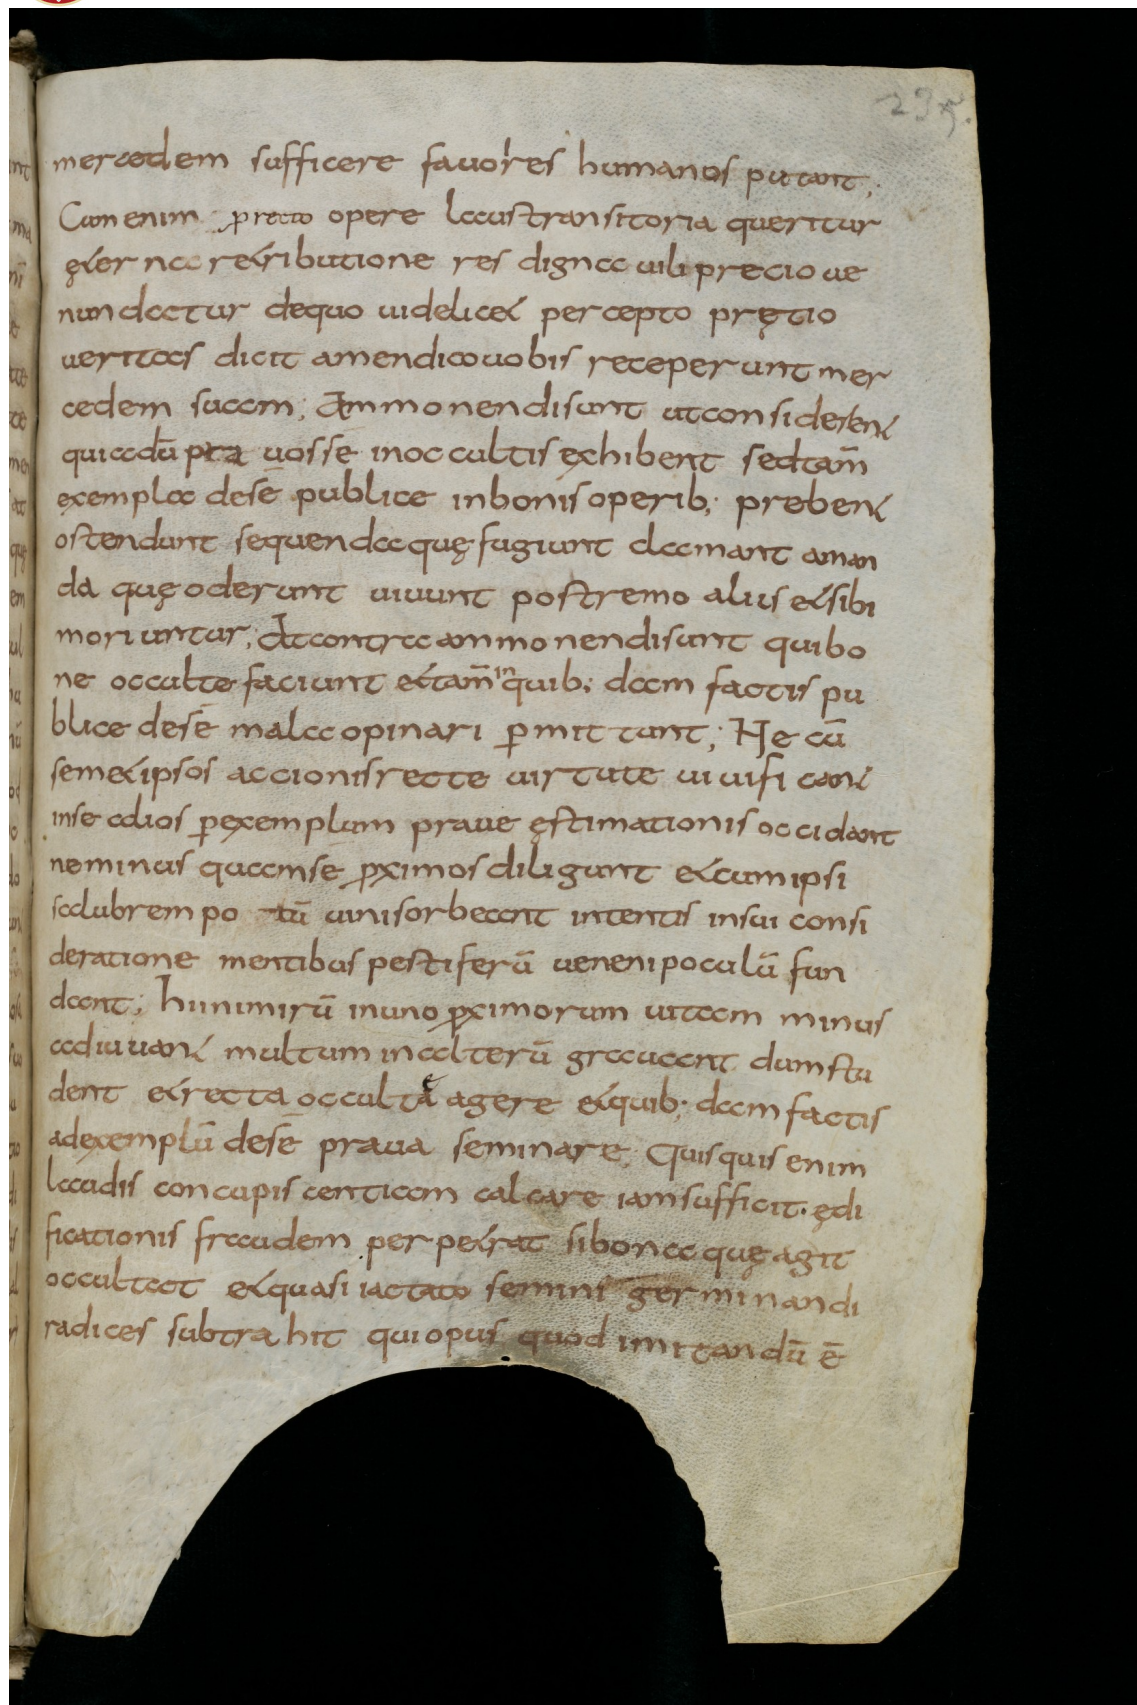 235.
mercedem sufficere fauores humanos putant;
Cum enim p recto opere laustransitoria queritur
ęterna retributione res digna uili precio ue
nundatur dequo uidelicet percepto prętio
ueritas dicit amendico uobis receperunt mer
cedem suam; Ammonendi sunt utconsiderent
quia dū uosse inoccultis exhibent sedtam̄
exempla desē publice inbonis operib; prebent
ostendunt sequenda quę fugiunt clamant aman
da quę oderunt uiuunt postremo aliis etsibi
moriuntur; At contra ammonendi sunt qui bo
ne occulte faciunt ettam̄ in quib; dam factis pu
blice desē mala opinari p̱mittunt; Ne cū
semetipsos accionis recte uirtute uiuificant
inse alios p̱exemplum praue ęstimationis occidant
neminus quamsē p̱ximos diligunt etcum ipsi
salubrem po tū uini sorbeant intentis insui consi
deratione mentibus pestiferū ueneni poculū fun
dant; hi nimirū inuno p̱ximorum uitam minus
adiuuant multum in alterū grauant dum stu
dent etrecta occulte agere etquib; dam factis
adexemplū desē praua seminare; Quisquis enim
laudis concupiscentiam calcare iam sufficit· ędi
ficationis fraudem perpetrat si bona quę agit
occultat etquasi iactato semini germinandi
radices subtrahit qui opus quod imitandū ē